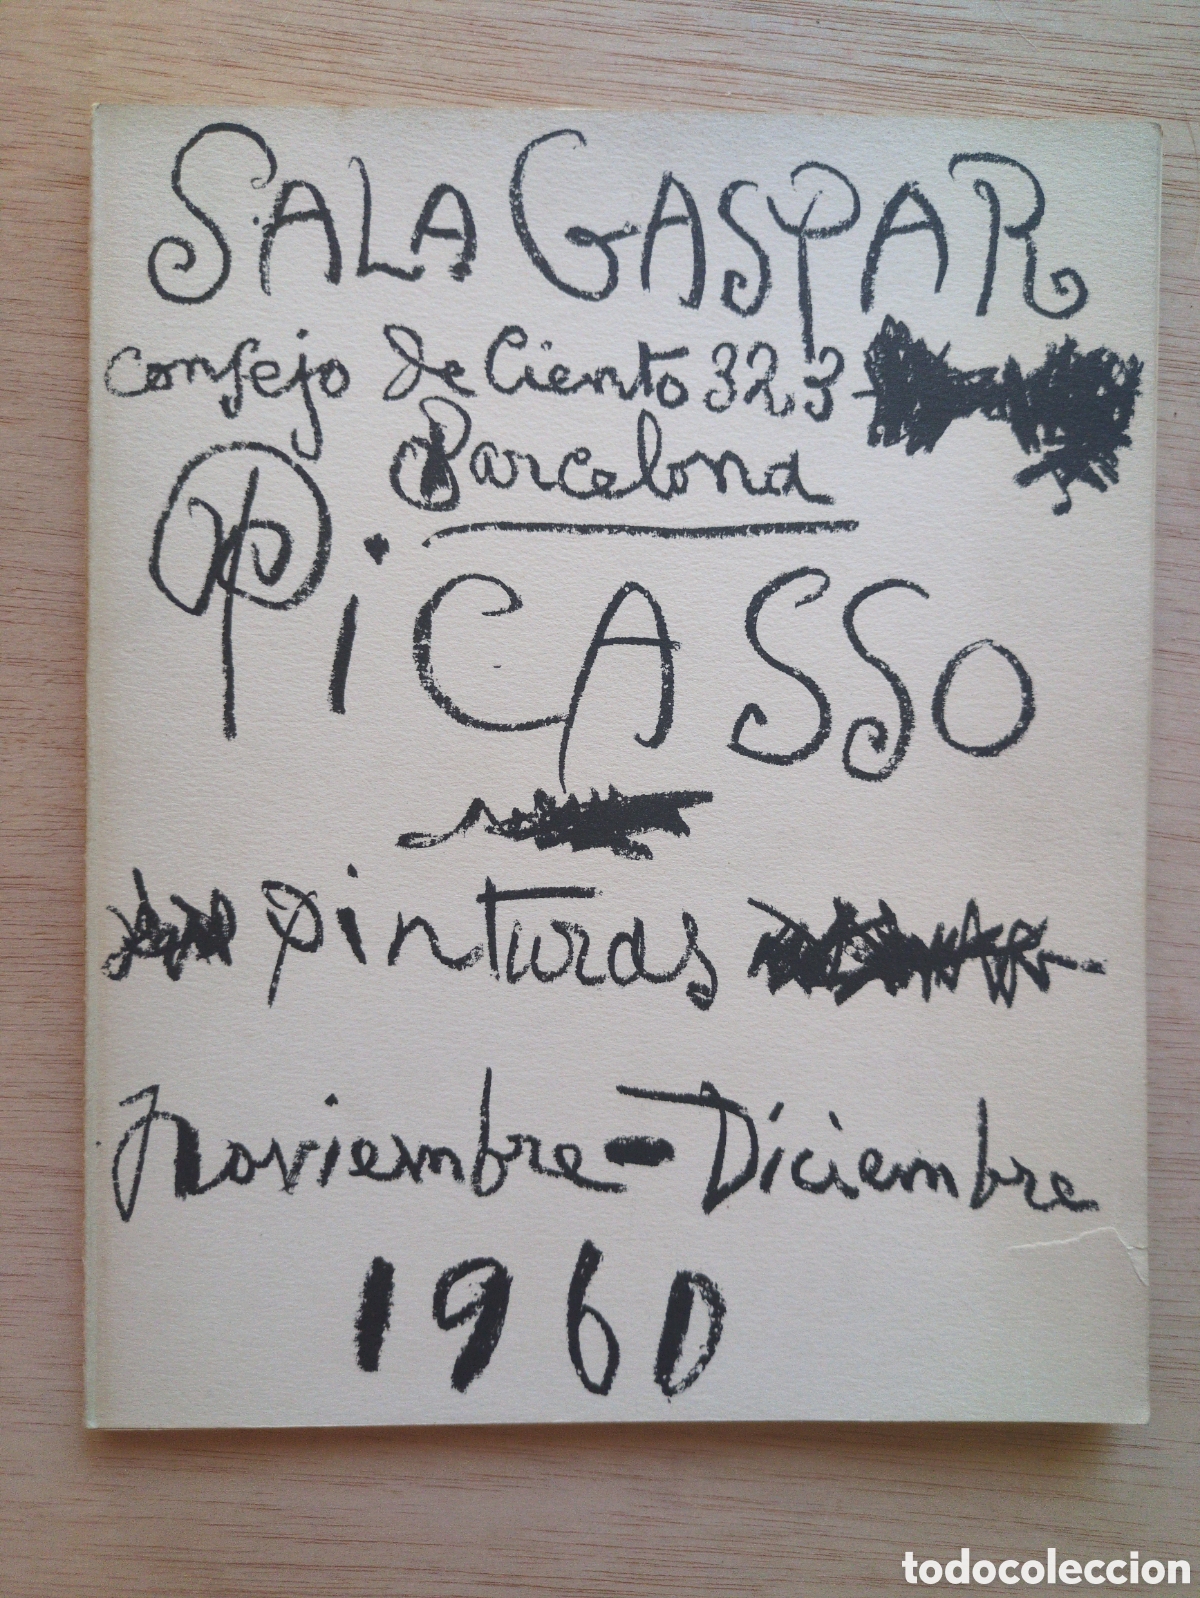 SALA GASPAR
consejo de Ciento 323
Barcelona
PiCASSO
pinturas
noviembre - Diciembre
1960
todocoleccion